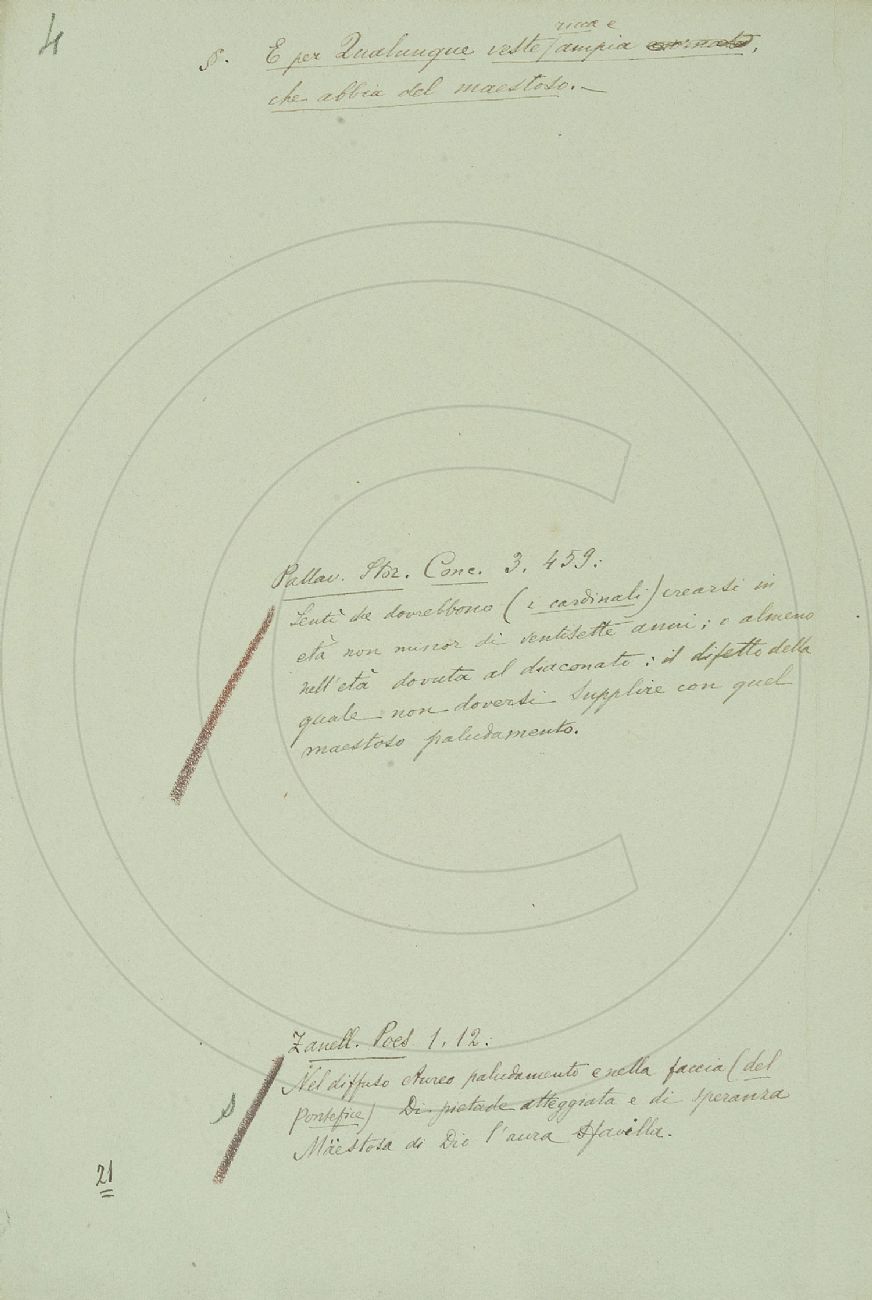 4
§. E per Qualunque veste ricca e ampia ornata,
che abbia del maestoso. –
Pallav. Stor. Conc. 3. 459:
Sentì che dovrebbono (i cardinali) crearsi in
età non minor di ventisette anni; o almeno
nell'età dovuta al diaconato; il difetto della
quale non doversi supplire con quel
maestoso paludamento.
Zanell. Poes 1. 12:
Nel diffuso Aureo paludamento e nella faccia (del
Pontefice) Di pietade atteggiata e di speranza
S
Maestosa di Dio l'aura sfavilla.
21